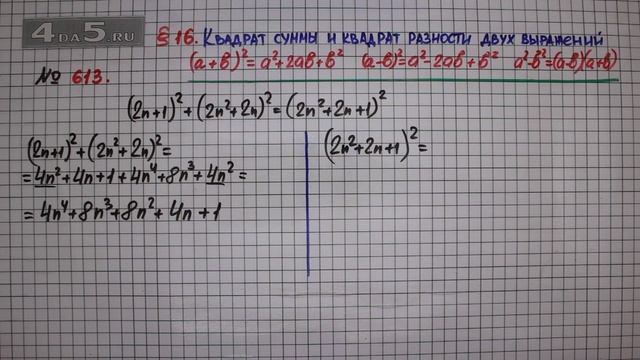 4DA5.RU
§ 16. Квадрат суммы и квадрат разности двух выражений
(a+b)²=a²+2ab+b² (a-b)²=a²-2ab+b² a²-b²=(a-b)(a+b)
№ 613.
(2n+1)²+(2n²+2n)²=(2n²+2n+1)²
(2n+1)²+(2n²+2n)²=
=4n²+4n+1+4n⁴+8n³+4n²=
=4n⁴+8n³+8n²+4n+1
(2n²+2n+1)²=